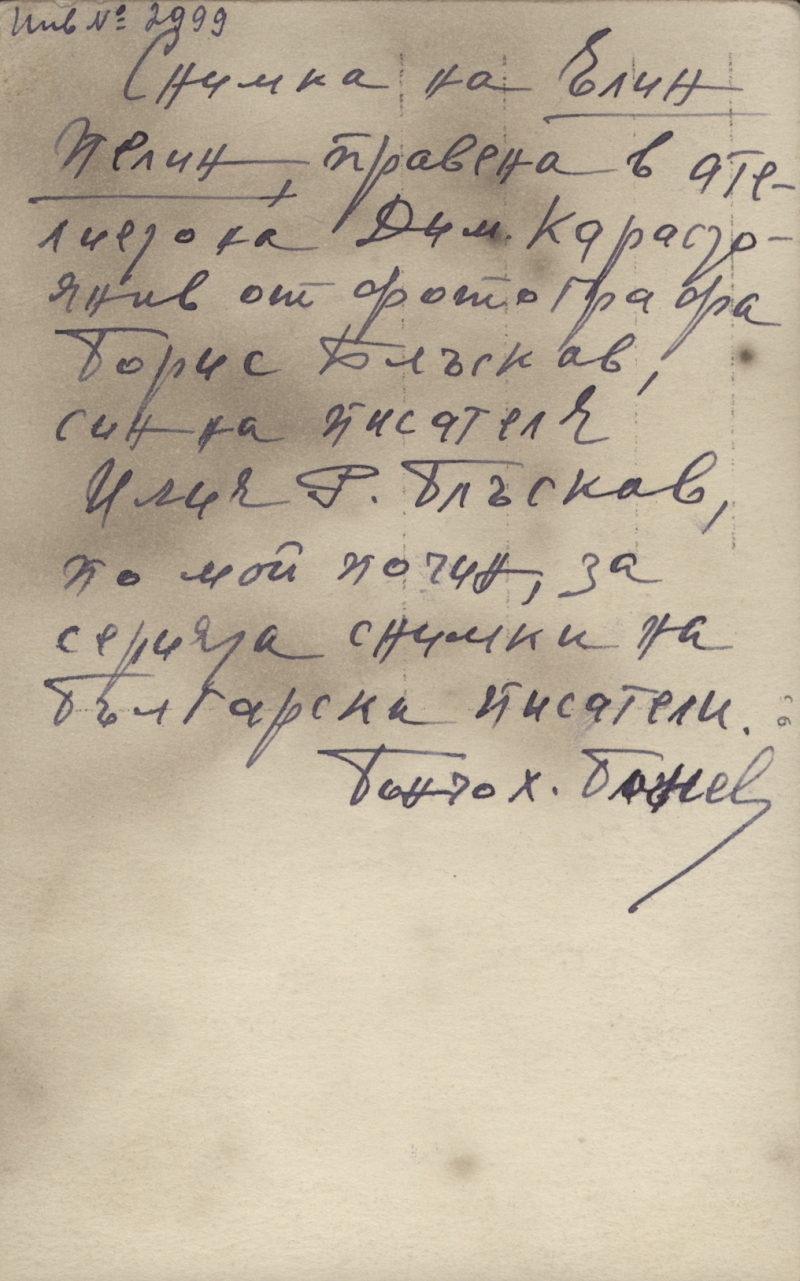 Инв № 2999
Снимка на Елин
Пелин, правена в ате-
лието на Дим. Карасто-
янов от фотографа
Борис Блъсков,
син на писателя
Илия Р. Блъсков,
по мой почин, за
серията снимки на
български писатели.
х.